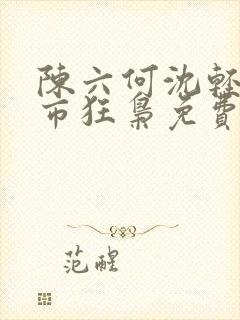 陳六何沈輕
市狂梟免費
范醒